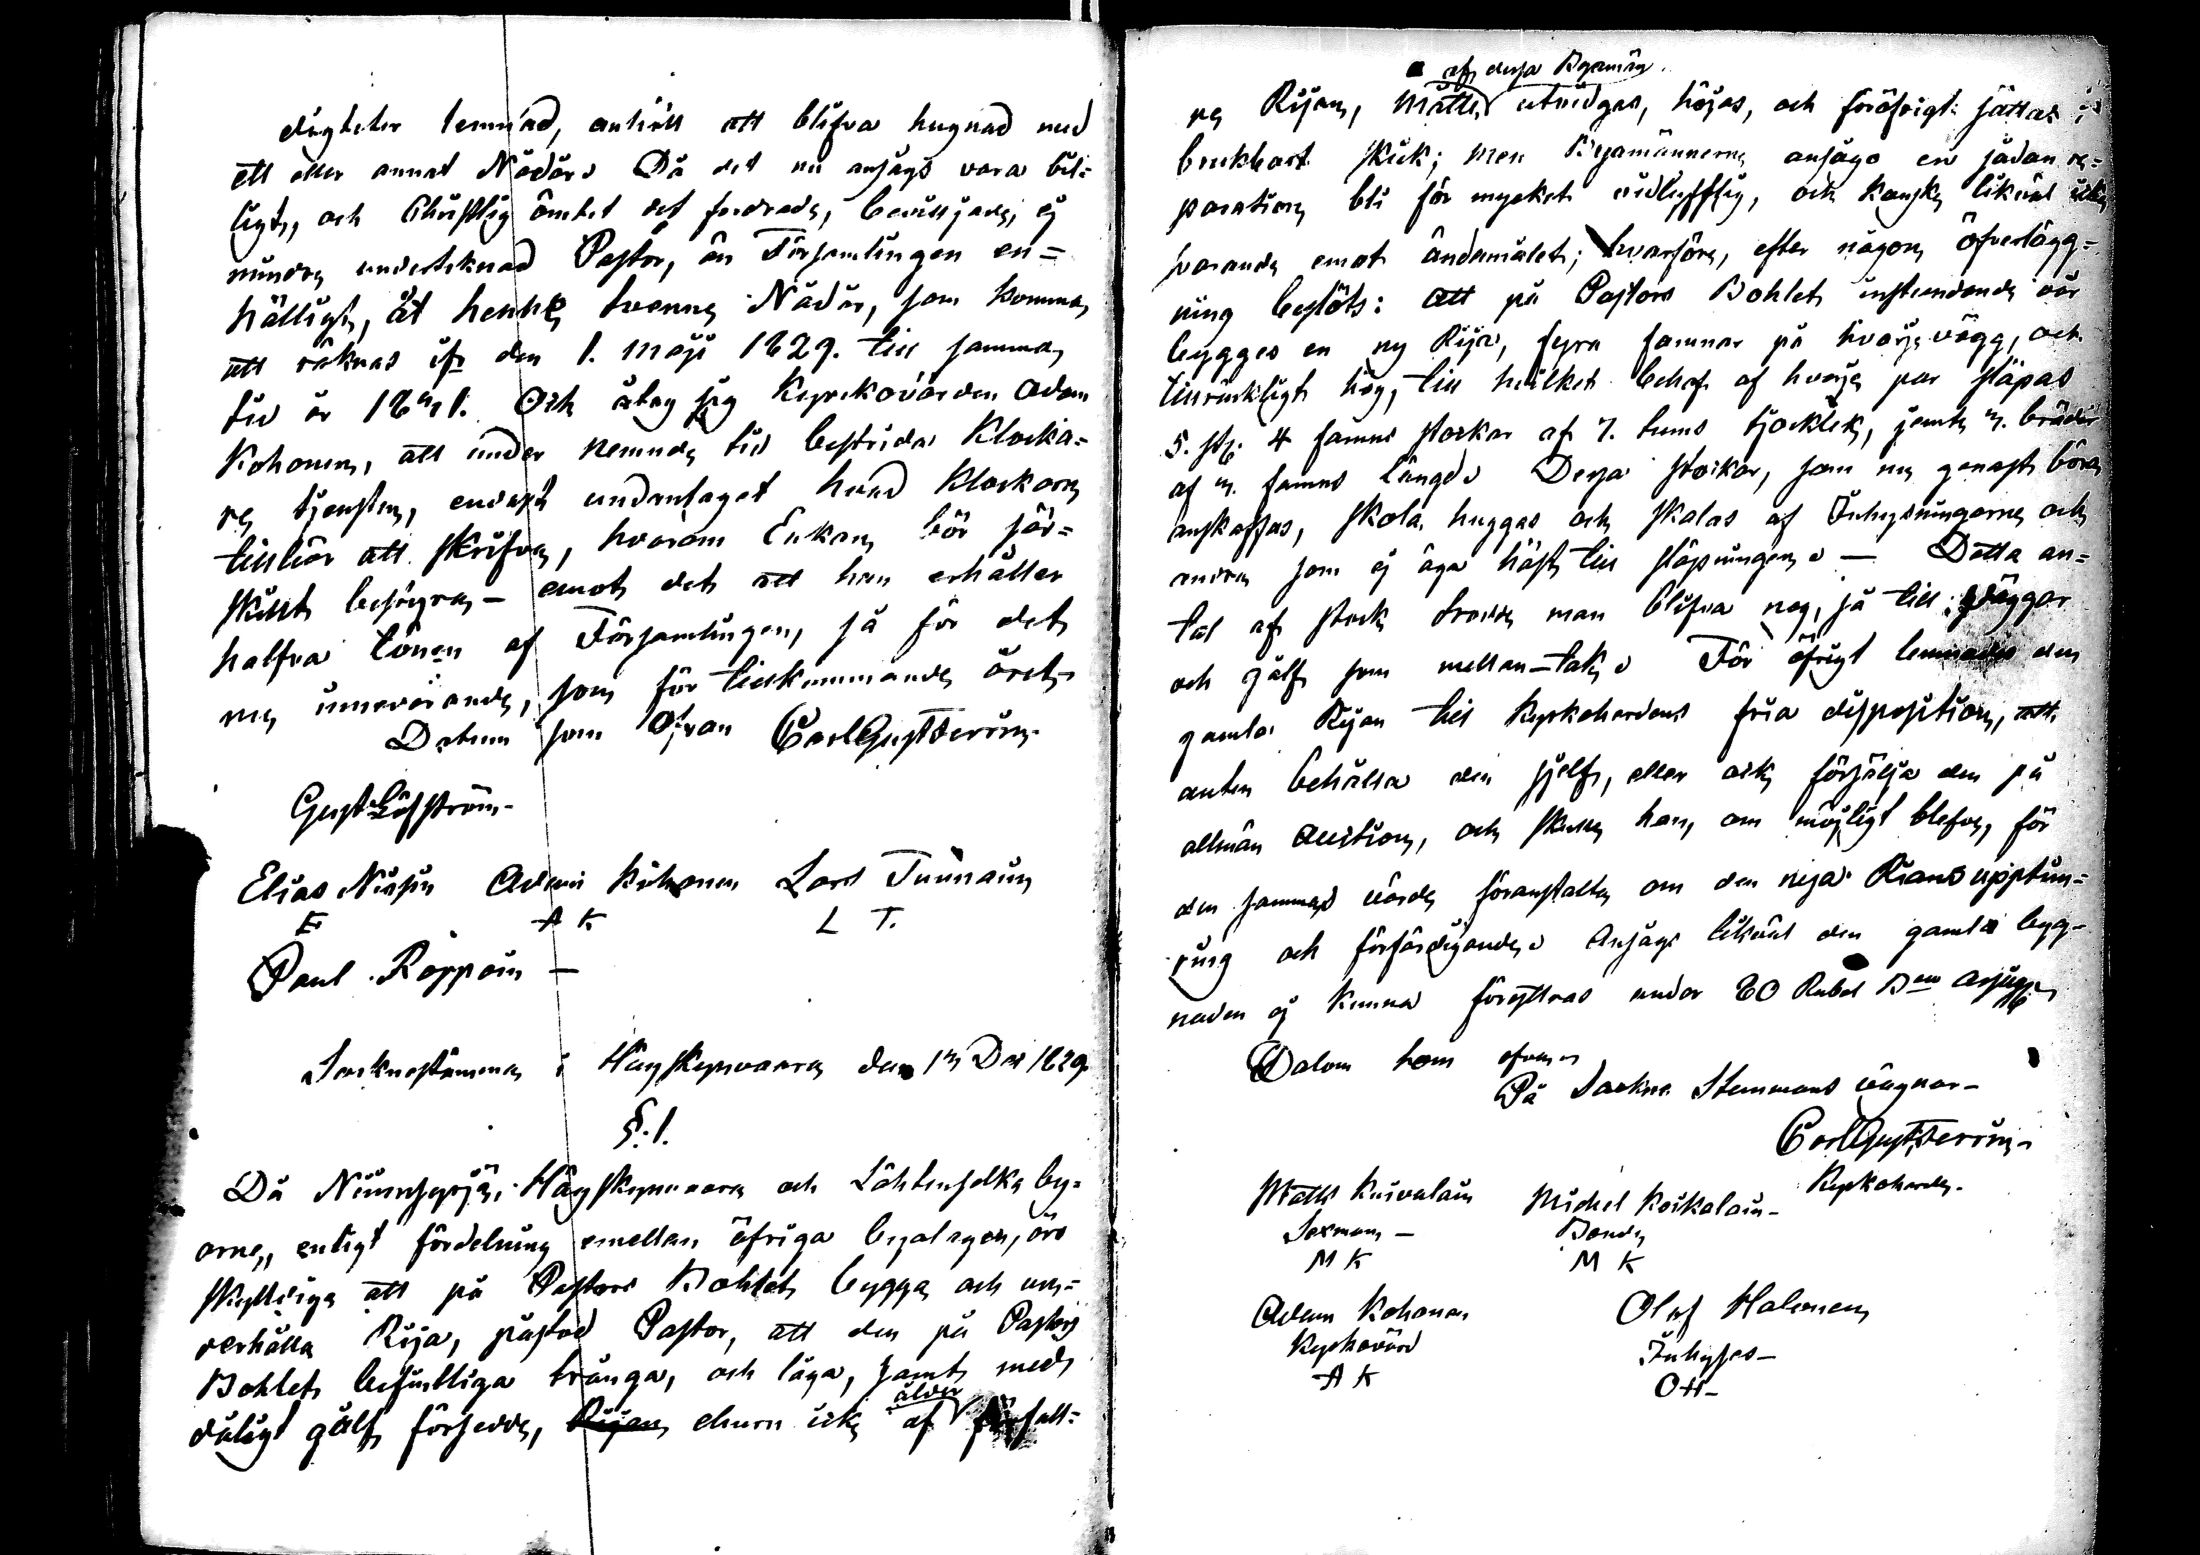 digheter lemnad, anhöll att blifva hugnad med
ett eller annat Nådår. Då det nu ansågs vara bil-
ligt, och Christlig ömhet det fordrade, beviljade, ej
mindre undertecknad Pastor, än Församlingen en-
hälligt, åt henne tvenne Nådår, som komma
att räknas ifr den 1. Maji 1829. till samma
tid år 1831. Och åtog sig Kyrckovärden Adam
Kohonen, att under nemnde tid bestrida Klocka-
re tjensten, endast undantaget hvad Klockaren
tillhör att skrifva, hvarom Enkan bör sär-
skilt besörja – emot det att han erhåller
halfva lönen af Församlingen, så för det
nu innevarande, som för tillkommande året.
Datum som ofvan Carl Gust Ferrin.
Gust Löfström.
Elias Nissin Adam Kohonen Lars Tiinain
E A K L T.
Paul Roppoin –
Socknestämma i Häyskynvaara den 1 Dec 1829.
§. 1.
Då Niinisyrjä, Häyskynvaara och Lahtinselkä by-
arne, enligt fördelning emellan öfriga byalagen, äro
skylldige att på Pastors Bohlet bygga och un-
derhålla Rija, påstod Pastor, att den på Pastors
Bohlet befintliga trånga, och låga, samt med
dåligt gålf försedda, Rijan, ehuru icke af ålder förfall-
af dessa Byamän
ne Rijan, måtte utvidgas, höjas, och föröfrigt sättas i
brukbart skick; men Byamännerne ansågo en sådan re-
paration bli för mycket vidlyfftig, och kanske likväl icke
svarande emot ändamålet; hvarföre, efter någon öfverlägg-
ning beslöts: att på Pastors Bohlet instundande vår
bygges en ny Rija, fyra famnar på hvarje vägg, och
tillräckligt hög, till hvilket behof af hvarje par släpas
5. st. 4 famns stockar af 7. tums tjocklek, jemte bräder
af famns längd. Dessa stockar, som nu genast böra
anskaffas, skola huggas och skalas af Inhysningarne och
andra som ej äga häst till släpningen. – Detta an-
tal af stock trodde man blifva nog, så till Väggar
och gålf som mellan-tak. För öfrigt lemnades den
gamla Rijan till Kyrkoherdens fria disposition, att
anten behålla den sjelf, eller ock försälja den på
allmän auction, och skulle han, om möjligt blefve, för
den samma värde föranstalta om den nya Rians upptim-
ring och förfärdigande. Ansågs likväl den gamla bygg-
naden ej kunna föryttras under 20 Rubel Bco Assign
Datum som ofvan
På Sockne Stemmans vägnar –
Carl Gust Ferrin.
Kyrkoherde.
Matts Kuivalain Michel Koikalain –
Sexman – Bonde
M K M K
Adam Kohonen Olof Halonen
Kyrkovärd Inhyses –
A K O H –